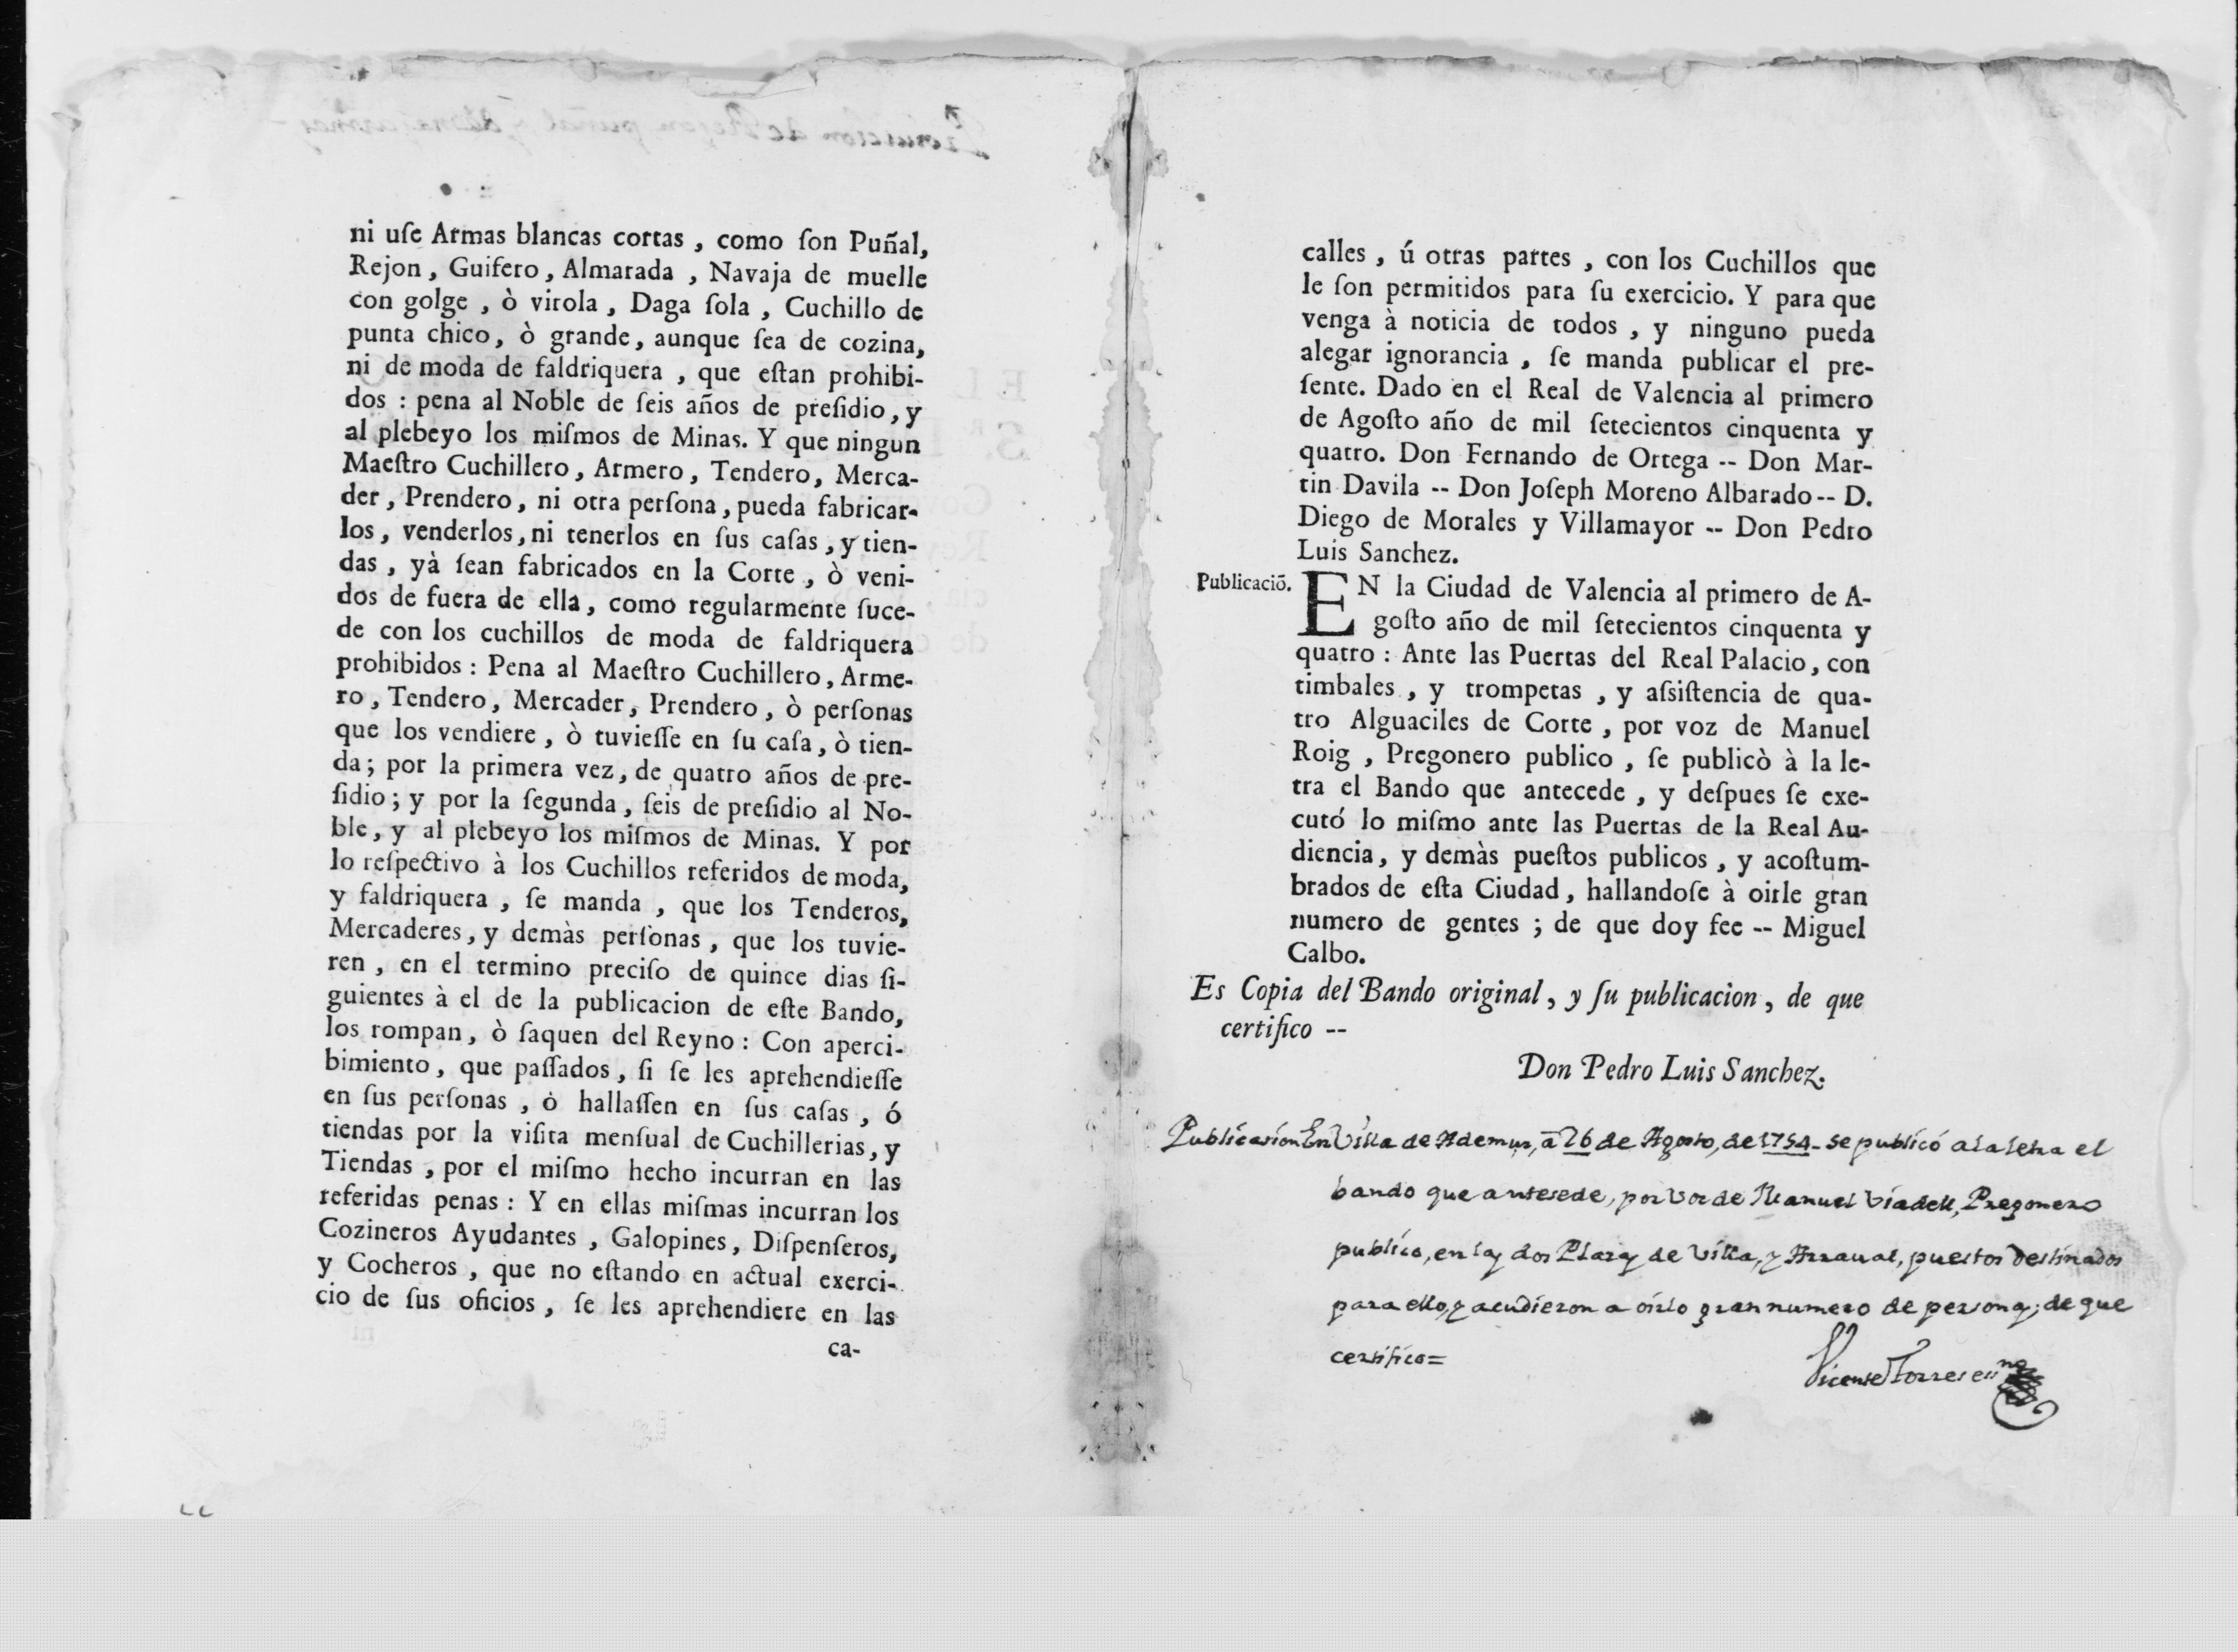 ni uſe Armas blancas cortas , como ſon Puñal,
Rejon , Guifero , Almarada , Navaja de muelle
con golge , ò virola , Daga ſola , Cuchillo de
punta chico, ò grande, aunque ſea de cozina,
ni de moda de faldriquera , que eſtan prohibi-
dos : pena al Noble de ſeis años de preſidio, y
al plebeyo los miſmos de Minas. Y que ningun
Maeſtro Cuchillero, Armero, Tendero, Merca-
der, Prendero, ni otra perſona, pueda fabricar-
los, venderlos, ni tenerlos en ſus caſas, y tien-
das , yà ſean fabricados en la Corte , ò veni-
dos de fuera de ella, como regularmente ſuce-
de con los cuchillos de moda de faldriquera
prohibidos : Pena al Maeſtro Cuchillero, Arme-
ro, Tendero, Mercader, Prendero, ò perſonas
que los vendiere , ò tuvieſſe en ſu caſa, ò tien-
da; por la primera vez, de quatro años de pre-
ſidio; y por la ſegunda, ſeis de preſidio al No-
ble, y al plebeyo los miſmos de Minas. Y por
lo reſpectivo à los Cuchillos referidos de moda,
y faldriquera , ſe manda , que los Tenderos,
Mercaderes, y demàs perſonas , que los tuvie-
ren , en el termino preciſo de quince dias ſi-
guientes à el de la publicacion de eſte Bando,
los rompan, ò ſaquen del Reyno : Con aperci-
bimiento, que paſſados, ſi ſe les aprehendieſſe
en ſus perſonas , ò hallaſſen en ſus caſas , ó
tiendas por la viſita menſual de Cuchillerias, y
Tiendas , por el miſmo hecho incurran en las
referidas penas : Y en ellas miſmas incurran los
Cozineros Ayudantes , Galopines, Diſpenſeros,
y Cocheros , que no eſtando en actual exerci-
cio de ſus oficios , ſe les aprehendiere en las
ca-
calles , ú otras partes , con los Cuchillos que
le ſon permitidos para ſu exercicio. Y para que
venga à noticia de todos , y ninguno pueda
alegar ignorancia , ſe manda publicar el pre-
ſente. Dado en el Real de Valencia al primero
de Agoſto año de mil ſetecientos cinquenta y
quatro. Don Fernando de Ortega -- Don Mar-
tin Davila -- Don Joſeph Moreno Albarado -- D.
Diego de Morales y Villamayor -- Don Pedro
Luis Sanchez.
Publicaciō.
EN la Ciudad de Valencia al primero de A-
goſto año de mil ſetecientos cinquenta y
quatro : Ante las Puertas del Real Palacio, con
timbales , y trompetas , y aſsiſtencia de qua-
tro Alguaciles de Corte , por voz de Manuel
Roig , Pregonero publico , ſe publicò à la le-
tra el Bando que antecede , y deſpues ſe exe-
cutó lo miſmo ante las Puertas de la Real Au-
diencia, y demàs pueſtos publicos , y acoſtum-
brados de eſta Ciudad, hallandoſe à oirle gran
numero de gentes ; de que doy fee -- Miguel
Calbo.
Es Copia del Bando original, y ſu publicacion, de que
certifico --
Don Pedro Luis Sanchez.
Publicasion En Villa de Ademus, a 26 de Agosto, de 1754 - se publicó a la letra el
bando que antesede, por vos de Manuel Viadell, Pregonero
publico, en las dos Plazas de Villa, y Arraual, puestos destinados
para ello, y acudieron a oirlo gran numero de personas; de que
certifico =
Vicente Torres essno